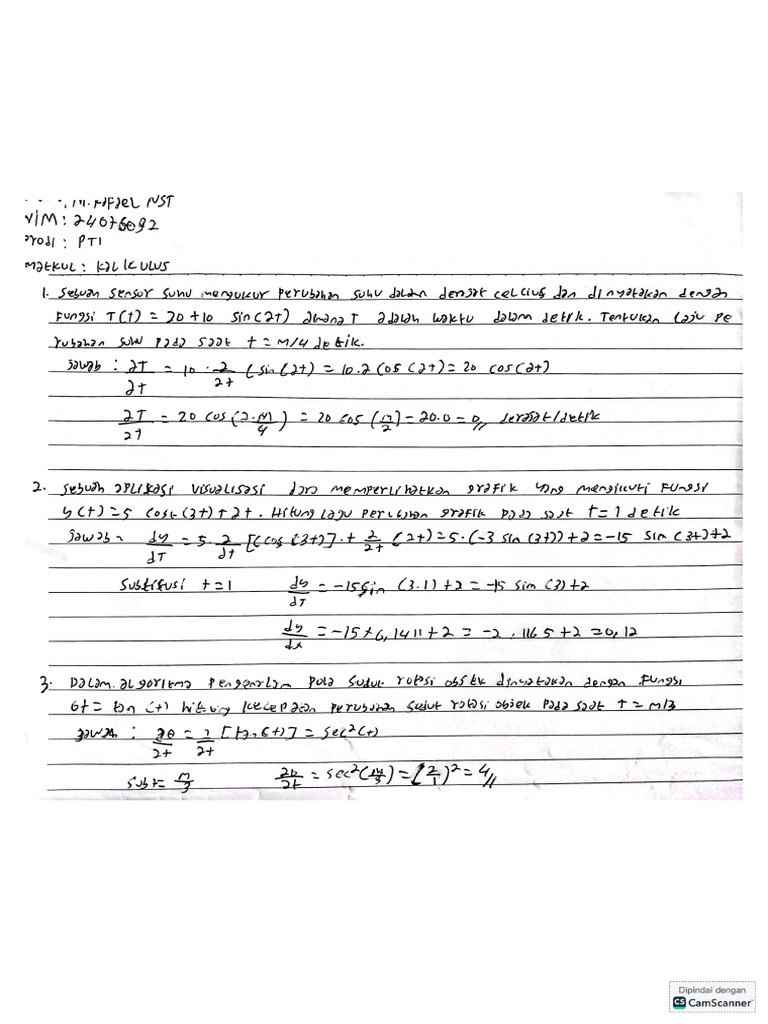 M. Rafael NST
NIM: 24076092
Prodi: PTI
Matkul: Kalkulus
1. Sebuah sensor suhu mengukur perubahan suhu dalam derajat celcius dan dinyatakan dengan
Fungsi T(t) = 20+10 sin(2t) dimana T adalah waktu dalam detik. Tentukan laju Pe
rubahan suhu pada saat t = π/4 detik.
Jawab : dT/dt = 10 · d/dt (sin(2t) = 10.2 cos(2t) = 20 cos(2t)
dT/dt = 20 cos(2·π/4) = 20 cos(π/2) = 20.0 = 0// derajat/detik
2. Sebuah aplikasi visualisasi data memperlihatkan grafik yang mengikuti fungsi
y(t) = 5 cost(3t)+2t. Hitung laju perubahan grafik pada saat t = 1 detik
Jawab = dy/dT = 5·d/dt [(cos(3t)] + d/dt (2t) = 5·(-3 sin(3t)) + 2 = -15 sin(3t)+2
Substitusi t = 1 dy/dT = -15 sin (3.1)+2 = -15 sin(3)+2
dy/dx = -15 × 0,1411+2 = -2.1165+2 = 0,12
3. Dalam algoritma pengenalan pola sudut rotasi objek dinyatakan dengan fungsi
θt = tan (t) hitung kecepatan perubahan sudut rotasi objek pada saat t = π/3
Jawab : dθ/dt = d/dt [tan(t)] = sec²(t)
Sub t = π/3 dθ/dt = sec²(π/3) = (2/1)² = 4//
Dipindai dengan
CS CamScanner